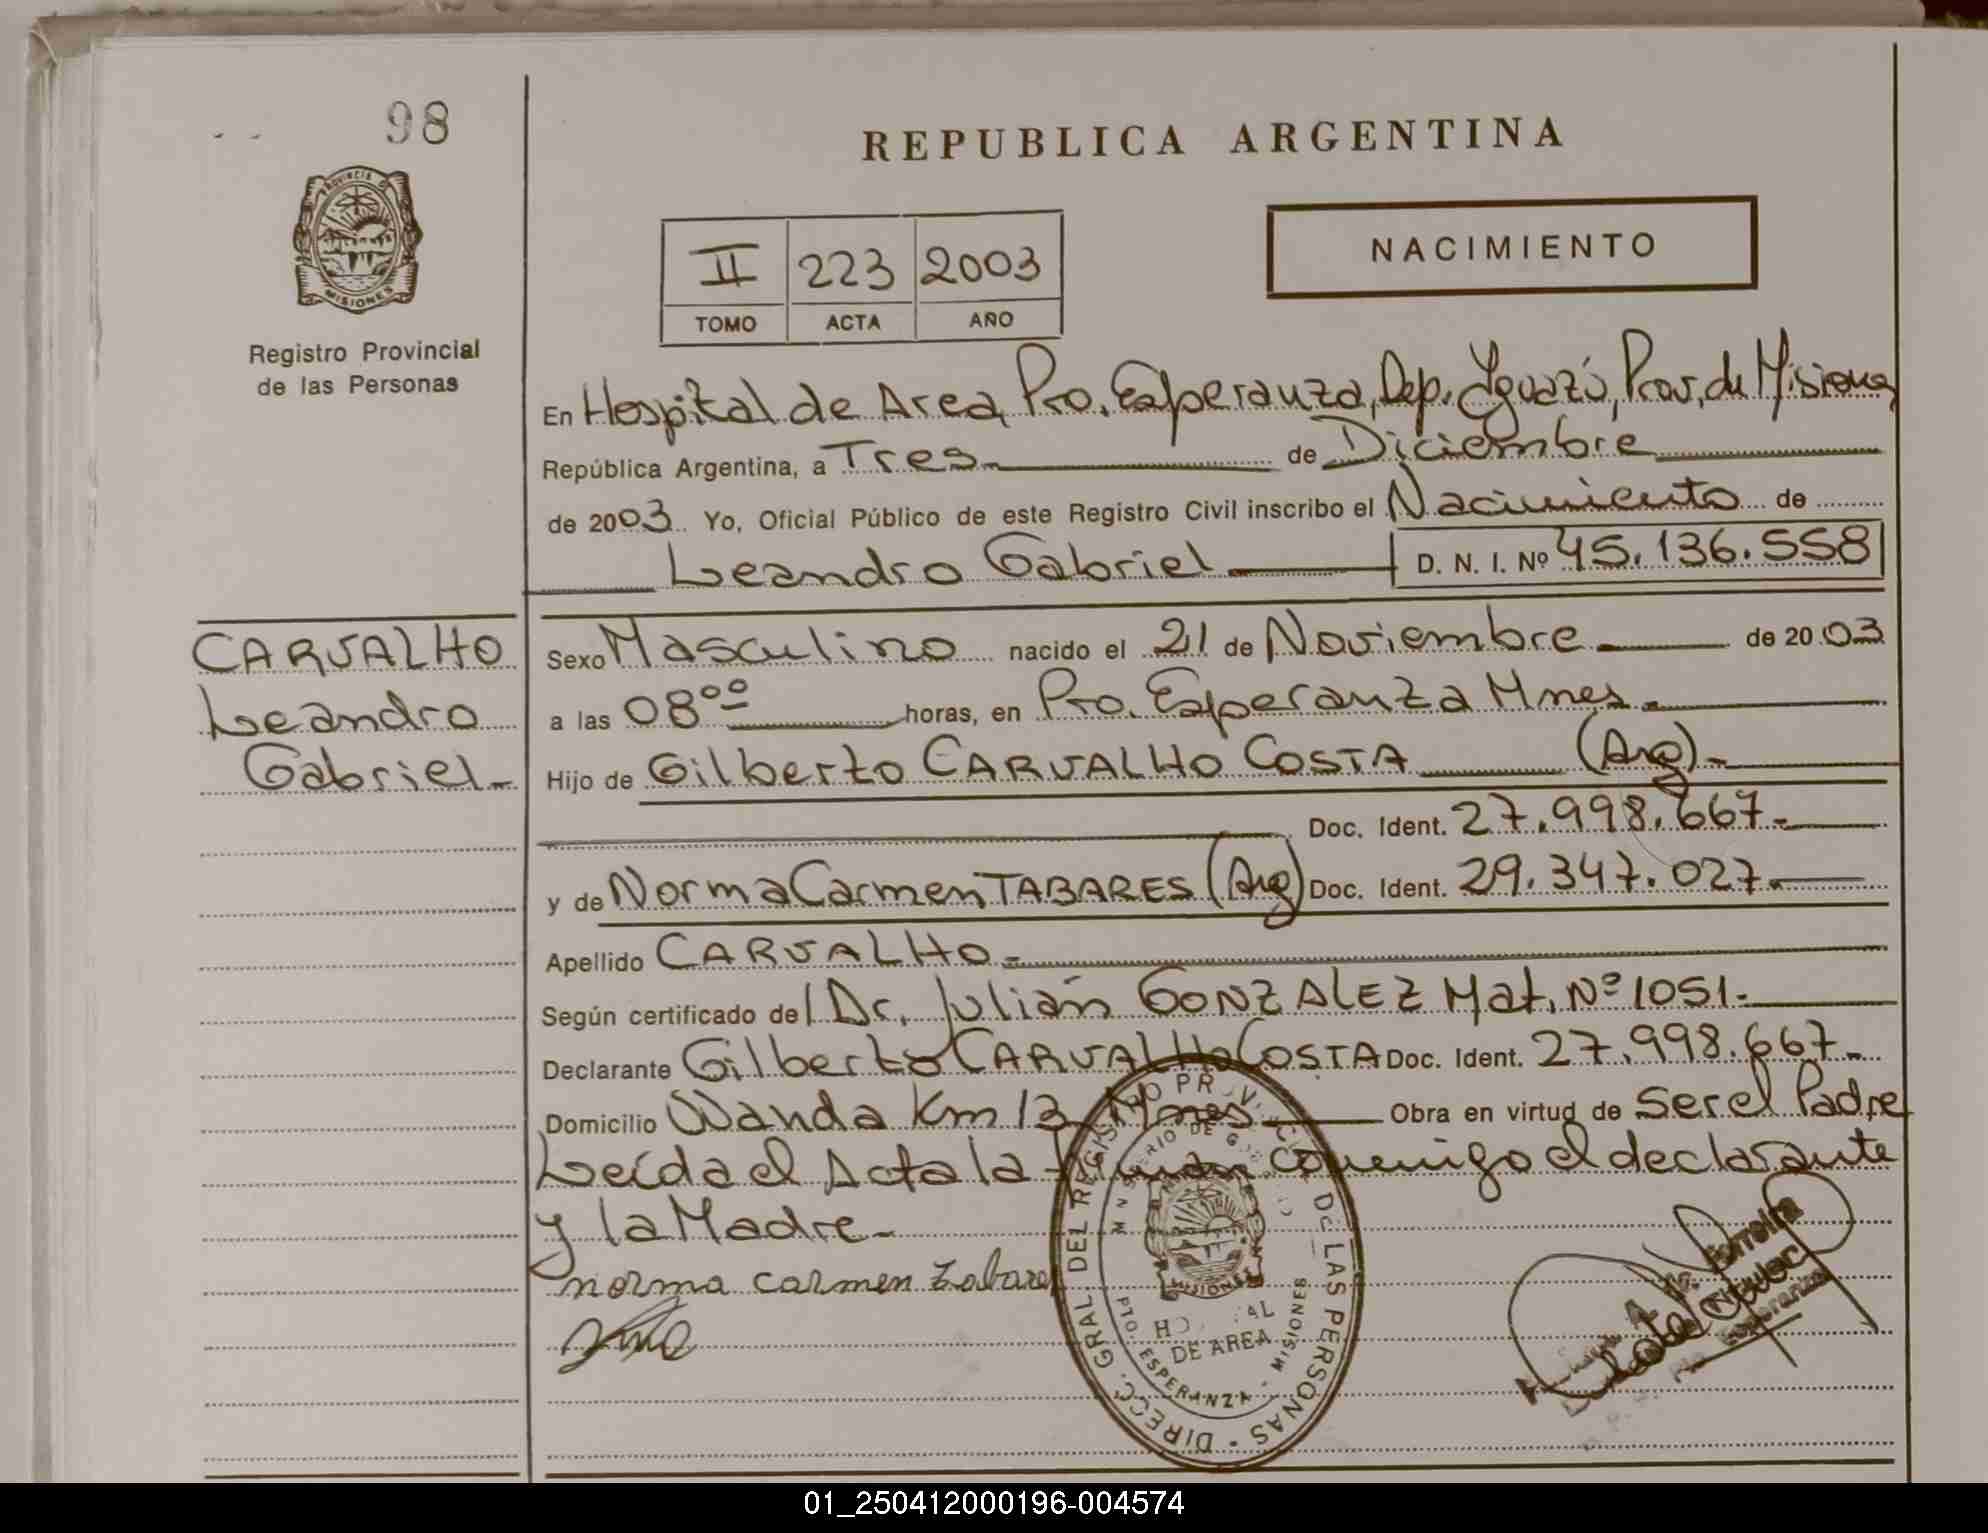 98
REPUBLICA ARGENTINA
PROVINCIA DE
MISIONES
Registro Provincial
de las Personas
II 223 2003
TOMO ACTA AÑO
NACIMIENTO
En Hospital de Area, Pto. Esperanza, Dep. Iguazú, Prov. de Misiones
República Argentina, a Tres de Diciembre
de 2003 Yo, Oficial Público de este Registro Civil inscribo el Nacimiento de
Leandro Gabriel D. N. I. Nº 45.136.558
CARVALHO
Leandro
Gabriel
Sexo Masculino nacido el 21 de Noviembre de 2003
a las 08⁰⁰ horas, en Pto. Esperanza Mnes.
Hijo de Gilberto CARVALHO COSTA (Arg)
Doc. Ident. 27.998.667
y de Norma Carmen TABARES (Arg) Doc. Ident. 29.347.027
Apellido CARVALHO
Según certificado del Dr. Julián GONZALEZ Mat. Nº 1051
Declarante Gilberto CARVALHO COSTA Doc. Ident. 27.998.667
Domicilio Wanda Km 13 Mnes Obra en virtud de Ser el Padre
Leída el Acta la firman conmigo el declarante
y la Madre
norma carmen tabares
DIRECC. GRAL. DEL REGISTRO PROVINCIAL DE LAS PERSONAS
MINISTERIO DE GOBIERNO
MISIONES
HOSPITAL
DE AREA
PTO. ESPERANZA - MISIONES
01_250412000196-004574